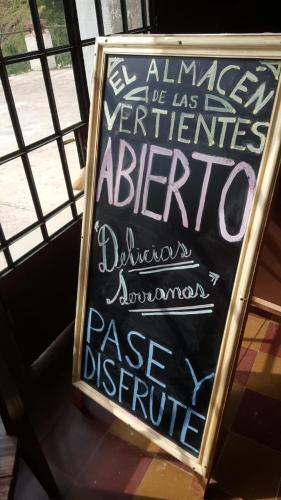 EL ALMACÉN
DE LAS
VERTIENTES
ABIERTO
"Delicias
Serranas"
PASE Y
DISFRUTE